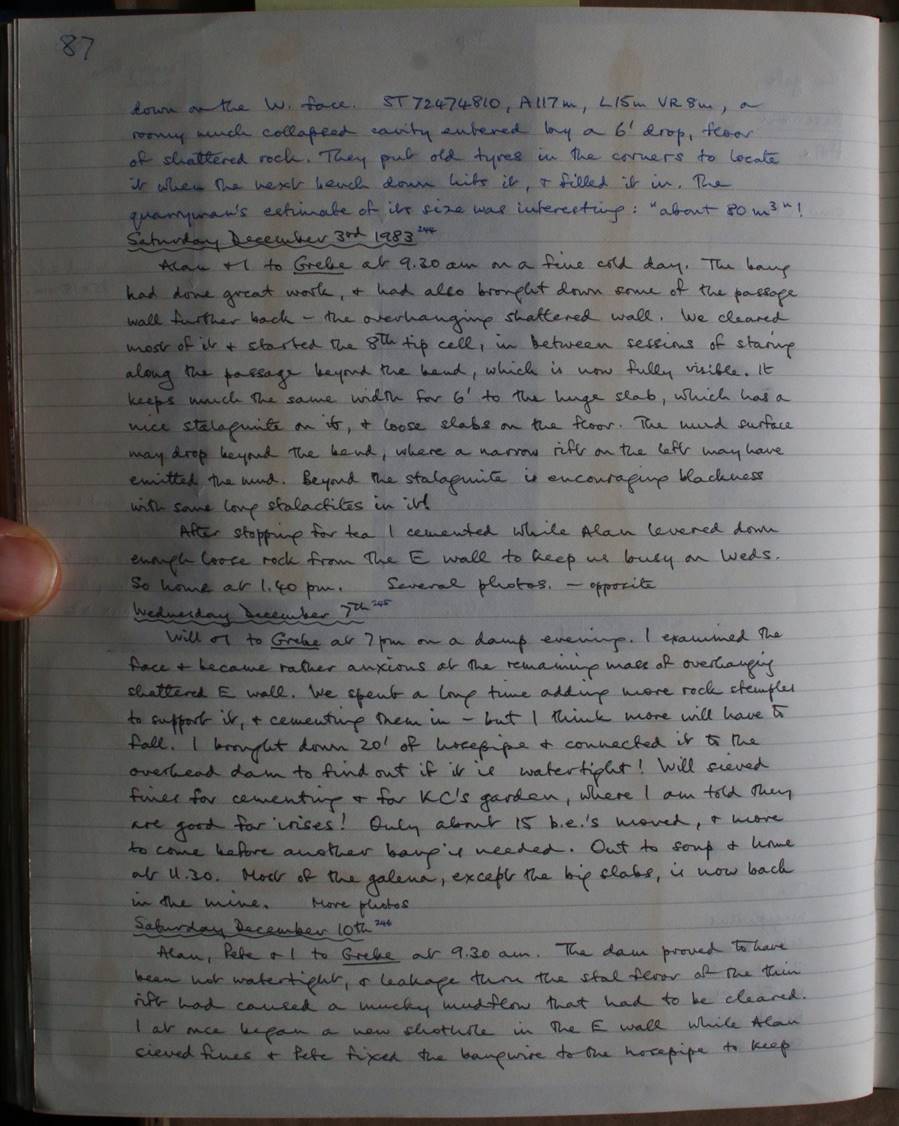 87
down on the W. face. ST 72474810, A117m, L15m VR 8m, a
roomy much collapsed cavity entered by a 6' drop, floor
of shattered rock. They put old tyres in the corners to locate
it when the next bench down hits it, & filled it in. The
quarryman's estimate of its size was interesting: "about 80 m³"!
Saturday December 3rd 1983 244
Alan & I to Grebe at 9.30 am on a fine cold day. The bang
had done great work, & had also brought down some of the passage
wall further back – the overhanging shattered wall. We cleared
most of it & started the 8th tip cell, in between sessions of staring
along the passage beyond the bend, which is now fully visible. It
keeps much the same width for 6' to the huge slab, which has a
nice stalagmite on it, & loose slabs on the floor. The mud surface
may drop beyond the bend, where a narrow rift on the left may have
emitted the mud. Beyond the stalagmite is encouraging blackness
with some long stalactites in it!
After stopping for tea I cemented while Alan levered down
enough loose rock from the E wall to keep us busy on Weds.
So home at 1.40 pm. Several photos. – opposite
Wednesday December 7th 245
Will & I to Grebe at 7pm on a damp evening. I examined the
face & became rather anxious at the remaining mass of overhanging
shattered E wall. We spent a long time adding more rock stemples
to support it, & cementing them in – but I think more will have to
fall. I brought down 20' of hosepipe & connected it to the
overhead dam to find out if it is watertight! Will sieved
fines for cementing & for KC's garden, where I am told they
are good for irises! Only about 15 b.e.'s moved, & more
to come before another bang is needed. Out to soup & home
at 11.30. Most of the galena, except the big slabs, is now back
in the mine. More photos
Saturday December 10th 246
Alan, Pete & I to Grebe at 9.30 am. The dam proved to have
been not watertight, & leakage thru the stal floor of the thin
rift had caused a mucky mudflow that had to be cleared.
I at once began a new shothole in the E wall while Alan
sieved fines & Pete fixed the bangwire to the hosepipe to keep